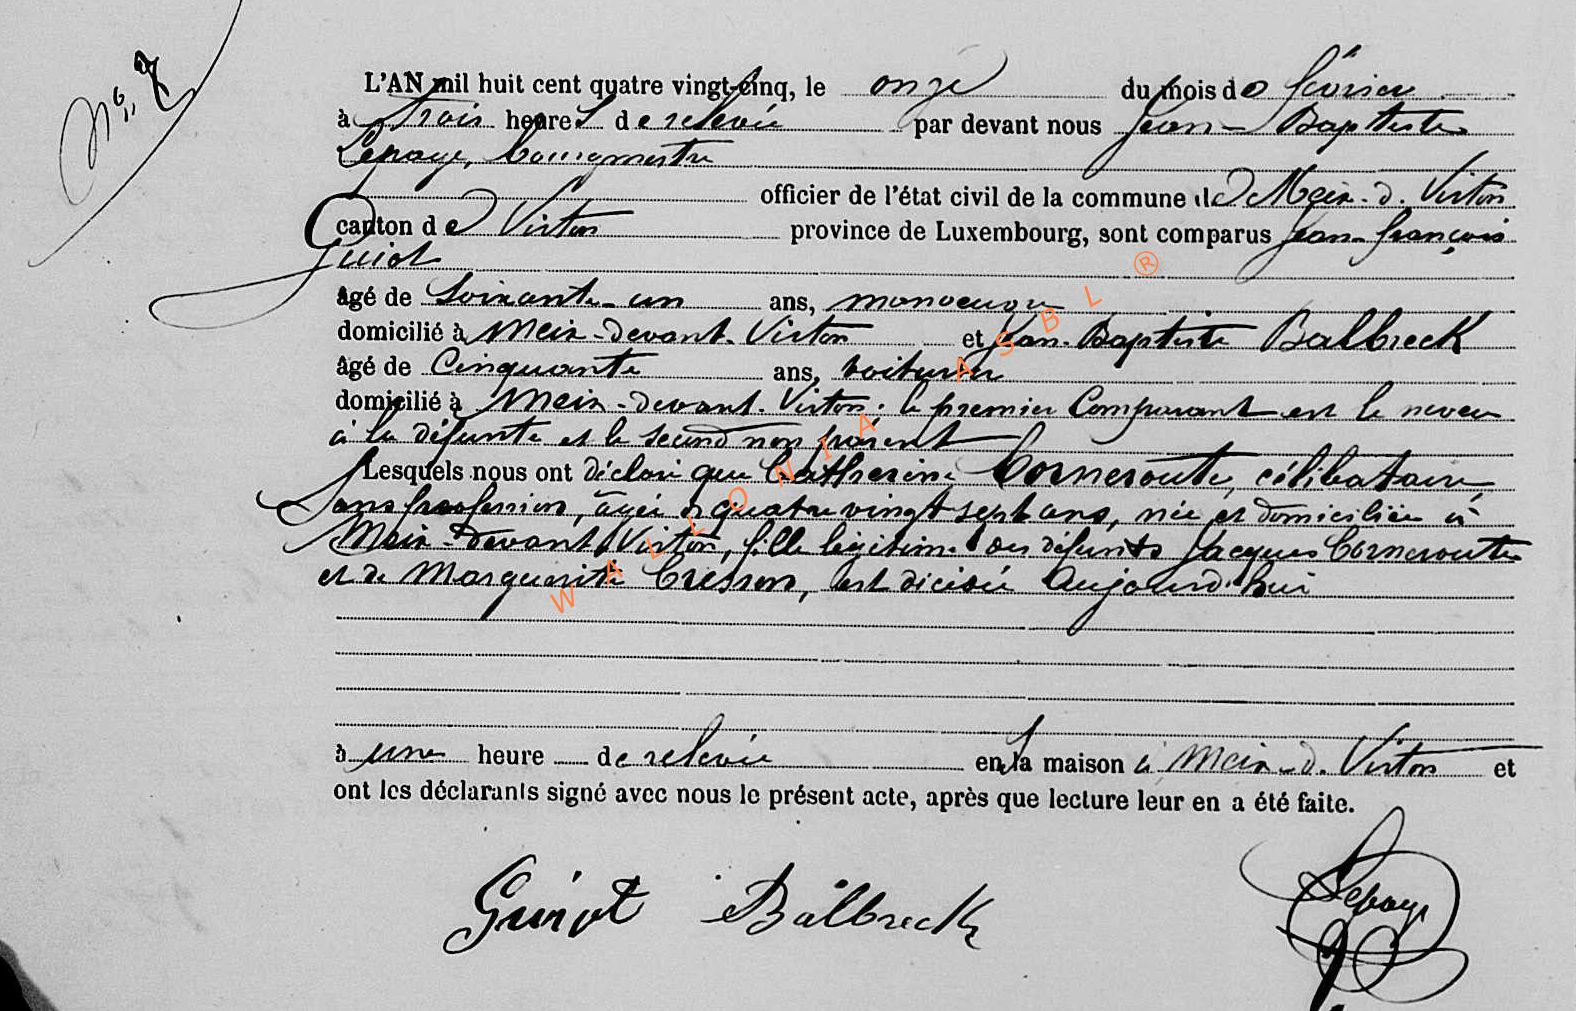 N° 7
L'AN mil huit cent quatre vingt-cinq, le onze du mois de février
à trois heures de relevée par devant nous Jean-Baptiste
Lepage, bourgmestre
officier de l'état civil de la commune de Meix-d. Virton
canton de Virton province de Luxembourg, sont comparus Jean-François
Guiot
âgé de soixante-un ans, manoeuvre
domicilié à Meix-devant-Virton et Jean-Baptiste Balbreck
âgé de Cinquante ans, voiturier
domicilié à Meix-devant-Virton; le premier Comparant est le neveu
à la défunte et le second non parent
Lesquels nous ont déclaré que Catherine Corneroute, célibataire,
sans profession, âgée de quatre vingt sept ans, née et domiciliée à
Meix-devant Virton, fille légitime des défunts Jacques Corneroute
et de Marguerite Cresson, est décédée aujourd'hui
à une heure de relevée en sa maison à Meix-d. Virton et
ont les déclarants signé avec nous le présent acte, après que lecture leur en a été faite.
Guiot Balbreck Lepage
WALLONIA ASBL ®